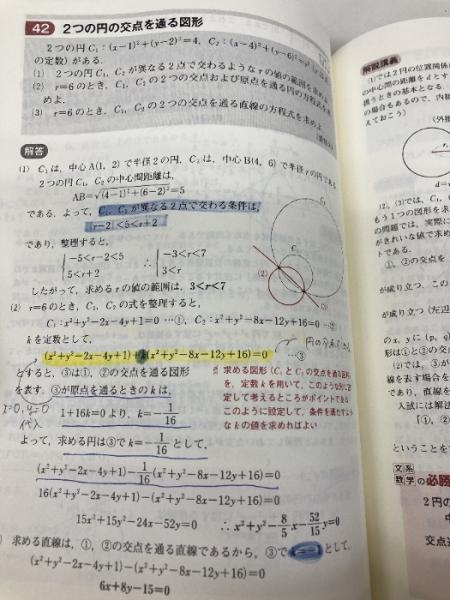 42 2つの円の交点を通る図形
2つの円 C₁：(x−1)²+(y−2)²=4, C₂：(x−4)²+(y−6)²=r²
の定数) がある.
(1) 2つの円 C₁, C₂ が異なる2点で交わるような r の値の範囲を求めよ.
(2) r=6のとき, C₁, C₂ の2つの交点および原点を通る円の方程式を求
めよ.
(3) r=6のとき, C₁, C₂ の2つの交点を通る直線の方程式を求めよ.
解答
(1) C₁ は, 中心 A(1, 2) で半径2の円, C₂ は, 中心 B(4, 6) で半径 r の円である
2つの円 C₁, C₂ の中心間距離は,
AB=√(4−1)²+(6−2)²=5
である. よって, C₁, C₂ が異なる2点で交わる条件は,
|r−2|<5<r+2
であり, 整理すると,
{−5<r−2<5 ∴ {−3<r<7
5<r+2 3<r
したがって, 求める r の値の範囲は, 3<r<7
C₂
C₁
(2)
(3)
(2) r=6のとき, C₁, C₂ の式を整理すると,
C₁：x²+y²−2x−4y+1=0 …①, C₂：x²+y²−8x−12y+16=0 …②
k を定数として,
(x²+y²−2x−4y+1)+k(x²+y²−8x−12y+16)=0 …③
とすると, ③は①, ②の交点を通る図形
を表す. ③が原点を通るときの k は,
x=0, y=0
代入
1+16k=0 より, k=−1/16
求める図形が C₁ と C₂ の交点を通る図形
を, 定数 k を用いて, このような形に設
定して考えるところがポイントである
このように設定して, 条件を満たすよう
な k の値を求めればよい
よって, 求める円は③で k=−1/16 として,
(x²+y²−2x−4y+1)−1/16(x²+y²−8x−12y+16)=0
16(x²+y²−2x−4y+1)−(x²+y²−8x−12y+16)=0
15x²+15y²−24x−52y=0 ∴ x²+y²−8/5x−52/15y=0
求める直線は, ①, ②の交点を通る直線であるから, ③で k=−1 として,
(x²+y²−2x−4y+1)−(x²+y²−8x−12y+16)=0
6x+8y−15=0
解説講義
(1)では2円の位置関係
の中心間の距離を d とす
扱うときの基本となる.
の場合もあるので, 内接
えておこう)
(外接
(2), (3)では, C₁,
もう1つの図形を求
の問題では, 実際に
がきれいな値で求め
トである.
①, ②の交点を
が成り立つ. この
が成り立つ (左辺
の x, y に (p,
形は①と②の交点
(2)では, ③が
線を表す場合を
であり, 直線を
入試には解法
「①, ②
ということを
文系
数学の必勝
2円の
中
交点